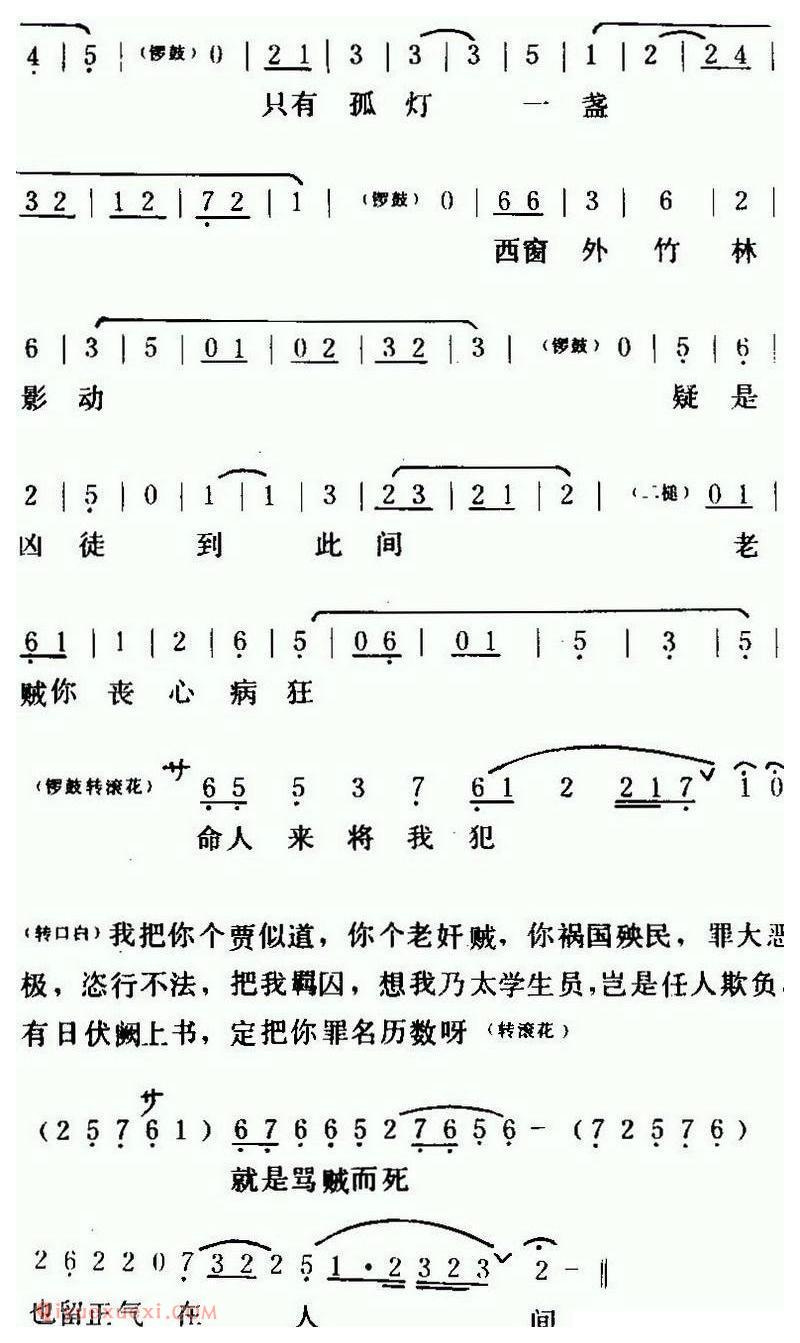 4 | 5 | （锣鼓） 0 | 21 | 3 | 3 | 3 | 5 | 1 | 2 | 24 |
只有 孤 灯 一 盏
32 | 12 | 72 | 1 | （锣鼓） 0 | 66 | 3 | 6 | 2 |
西窗 外 竹 林
6 | 3 | 5 | 01 | 02 | 32 | 3 | （锣鼓） 0 | 5 | 6 |
影 动 疑 是
2 | 5 | 0 | 1 | 1 | 3 | 23 | 21 | 2 | （二槌） 01 |
凶 徒 到 此 间 老
61 | 1 | 2 | 6 | 5 | 06 | 01 | 5 | 3 | 5 |
贼你 丧 心 病 狂
（锣鼓转滚花） サ 65 5 3 7 61 2 217 1 0
命人 来 将 我 犯
（转口白）我把你个贾似道，你个老奸贼，你祸国殃民，罪大恶
极，恣行不法，把我羁囚，想我乃太学生员，岂是任人欺负，
有日伏阙上书，定把你罪名历数呀（转滚花）
サ
（25761） 67 6 6 5 2 76 5 6 － （72576）
就是骂贼而死
2 6 2 2 0 7 32 2 5 1·2 323 2 － ‖
也留正气在 人 间